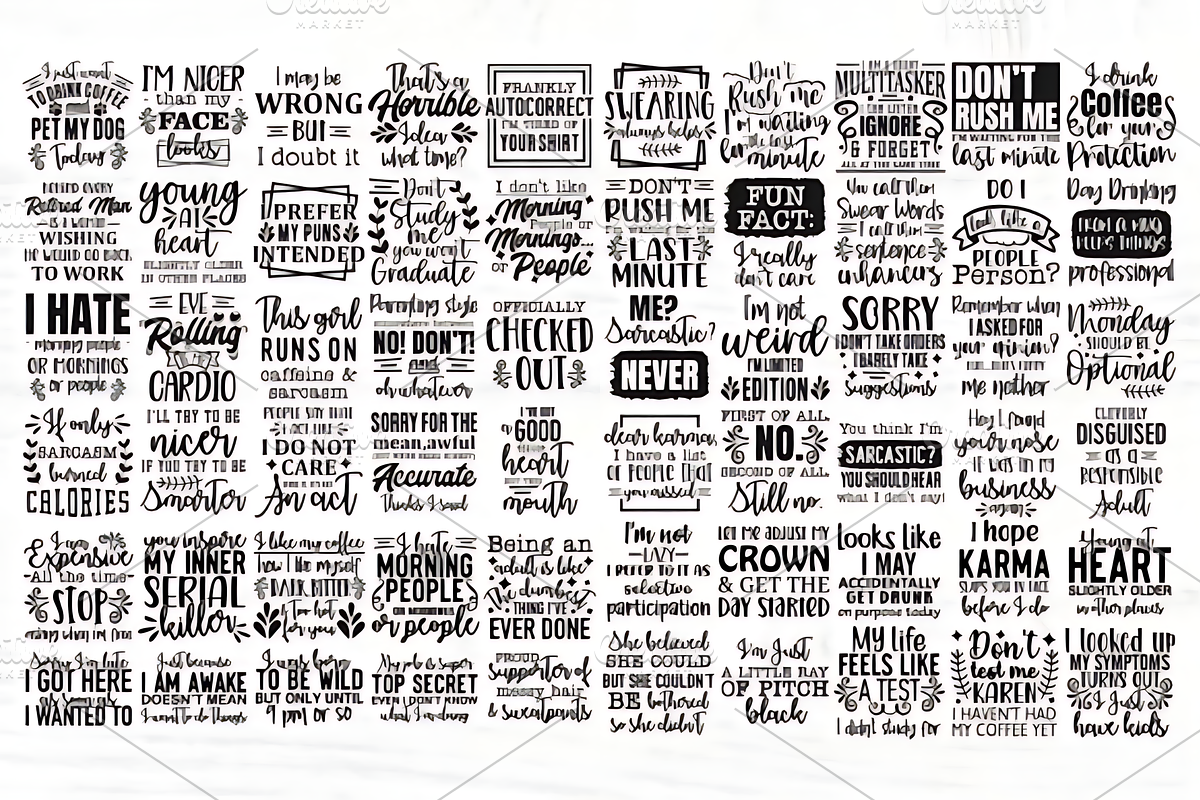 Creative
MARKET
I just want
TO DRINK COFFEE
PET MY DOG
Today
I'M NICER
than my
FACE
looks
I may be
WRONG
BUT
I doubt it
That's a
Horrible
Idea
what time?
FRANKLY
AUTOCORRECT
I'M TIRED OF
YOUR SHIRT
SWEARING
always helps
Don't
Rush me
I'm waiting
for the last
minute
MULTITASKER
I CAN LISTEN
IGNORE
& FORGET
ALL AT THE SAME TIME
DON'T
RUSH ME
I'M WAITING FOR THE
last minute
I drink
Coffee
for your
Protection
BEHIND EVERY
Retired Man
IS A WIFE
WISHING
HE WOULD GO BACK
TO WORK
young
AT
heart
SLIGHTLY OLDER
IN OTHER PLACES
I PREFER
MY PUNS
INTENDED
Don't
Study
me
you won't
Graduate
I don't like
Morning
People or
Mornings...
or People
DON'T
RUSH ME
LAST
MINUTE
FUN
FACT:
I really
don't care
You call them
Swear Words
I call them
sentence
enhancers
DO I
look like a
PEOPLE
Person?
Day Drinking
professional
I HATE
morning people
OR MORNINGS
or people
EYE
Rolling
IS MY
CARDIO
This girl
RUNS ON
caffeine &
sarcasm
Parenting style
NO! DON'T!
and
oh whatever
OFFICIALLY
CHECKED
OUT
ME?
Sarcastic?
NEVER
I'm not
weird
I'M LIMITED
EDITION
SORRY
I DON'T TAKE ORDERS
I BARELY TAKE
suggestions
Remember when
I ASKED FOR
your opinion?
me neither
Monday
SHOULD BE
Optional
If only
SARCASM
burned
CALORIES
I'LL TRY TO BE
nicer
IF YOU TRY TO BE
Smarter
PEOPLE SAY THAT
I ACT LIKE
I DO NOT
CARE
An act
SORRY FOR THE
mean, awful
Accurate
Thinks I said
I'M NOT
a GOOD
heart
mouth
dear karma,
I have a list
OF PEOPLE THAT
you missed
FIRST OF ALL,
NO.
SECOND OF ALL,
Still no.
You think I'm
SARCASTIC?
YOU SHOULD HEAR
what I don't say!
Hey I found
your nose
IT WAS IN MY
business
again!
CLEVERLY
DISGUISED
AS A
RESPONSIBLE
Adult
I am
Expensive
All the time
STOP
you inspire
MY INNER
SERIAL
killer
I like my coffee
how I like myself
DARK, BITTER
& Too hot
for you
I hate
MORNING
PEOPLE
OR MORNINGS
or people
Being an
adult is like
the dumbest
THING I'VE
EVER DONE
I'm not
LAZY
I PREFER TO IT AS
selective
participation
LET ME ADJUST MY
CROWN
& GET THE
DAY STARTED
looks like
I MAY
ACCIDENTALLY
GET DRUNK
on purpose today
I hope
KARMA
SLAPS YOU IN FACE
before I do
Young at
HEART
SLIGHTLY OLDER
in other places
Sorry I'm late
I GOT HERE
as soon as
I WANTED TO
Just because
I AM AWAKE
DOESN'T MEAN
I want to do things
I was born
TO BE WILD
BUT ONLY UNTIL
9 pm or so
My job is super
TOP SECRET
EVEN I DON'T KNOW
what I'm doing
PROUD
supporter of
messy hair
& sweatpants
She believed
SHE COULD
BUT SHE COULDN'T
BE bothered
so she didn't
I'm Just
A LITTLE RAY
OF PITCH
black
My life
FEELS LIKE
A TEST
I didn't study for
Don't
test me
KAREN
I HAVEN'T HAD
MY COFFEE YET
I looked up
MY SYMPTOMS
TURNS OUT
I Just
have kids